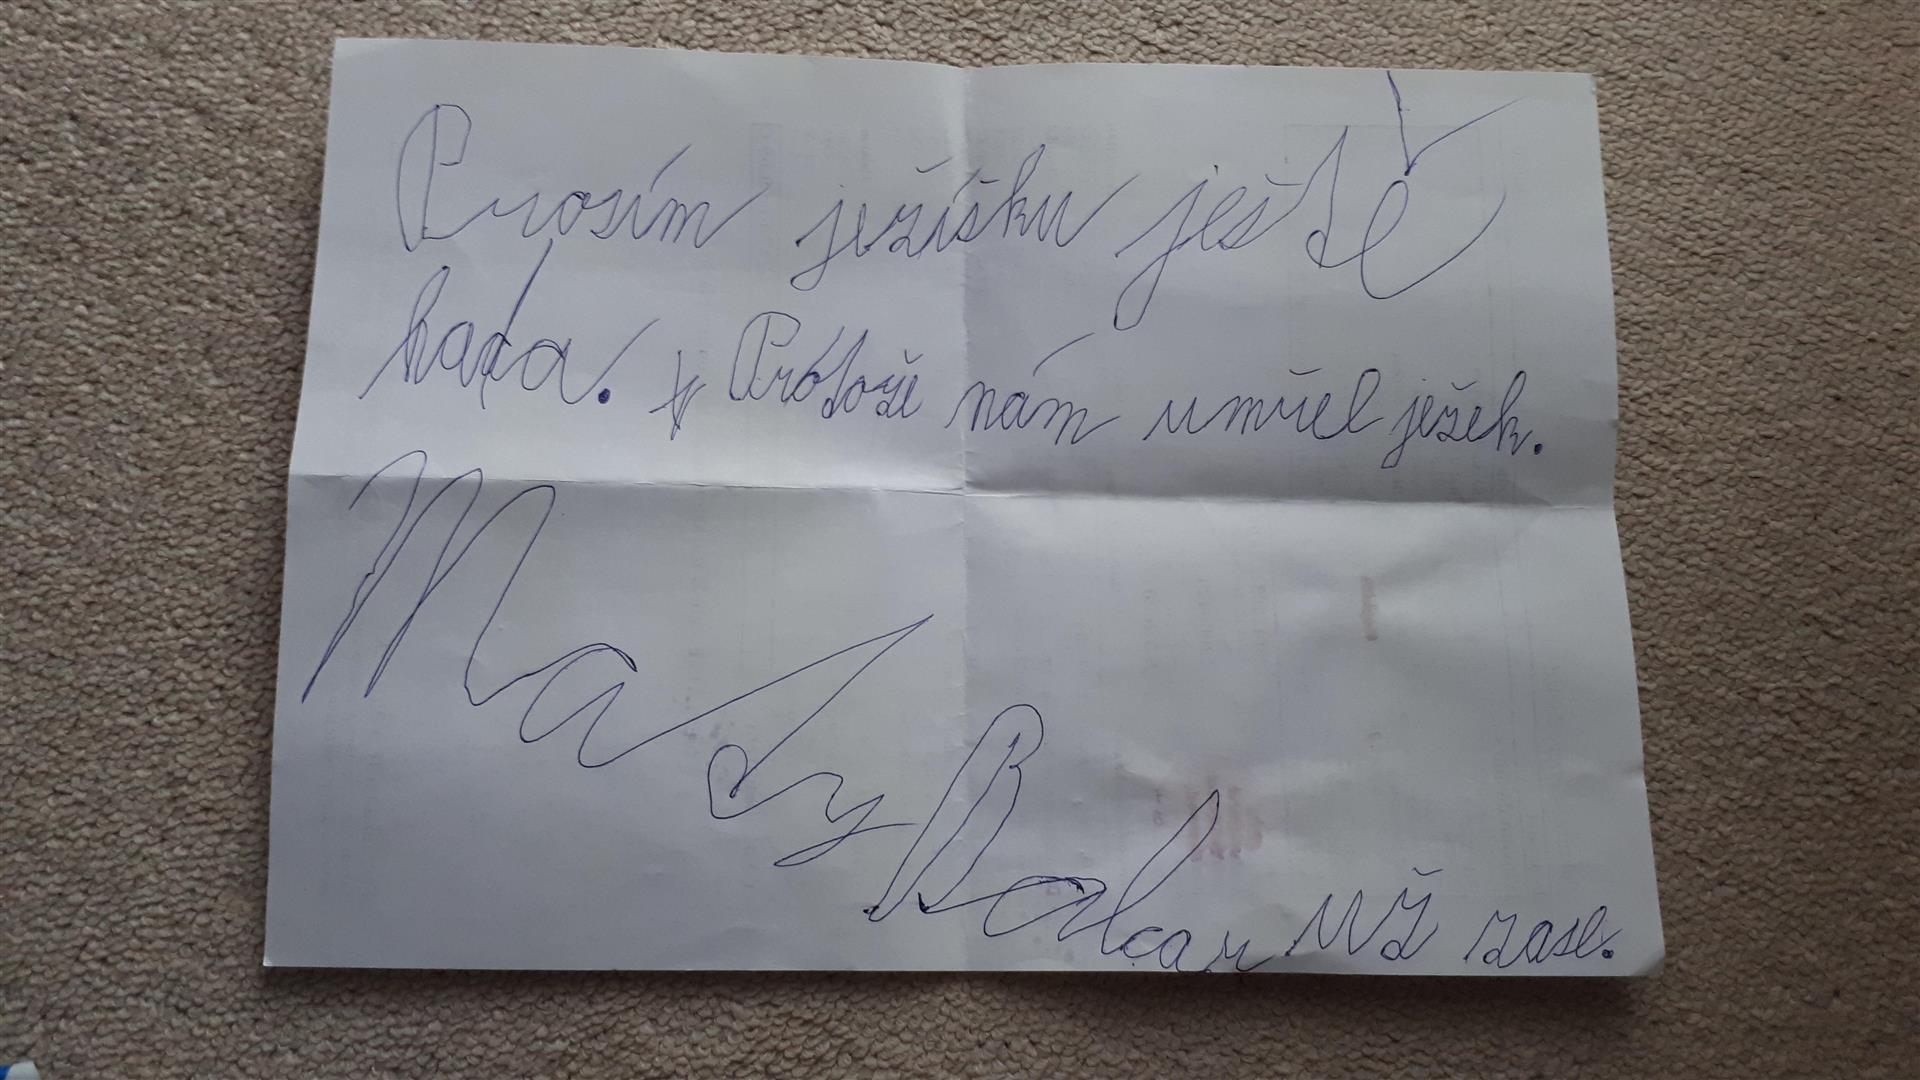 Prosím ježíšku ještě
hada. Prótože nám umřel ježek.
Maty Balcar už zase.